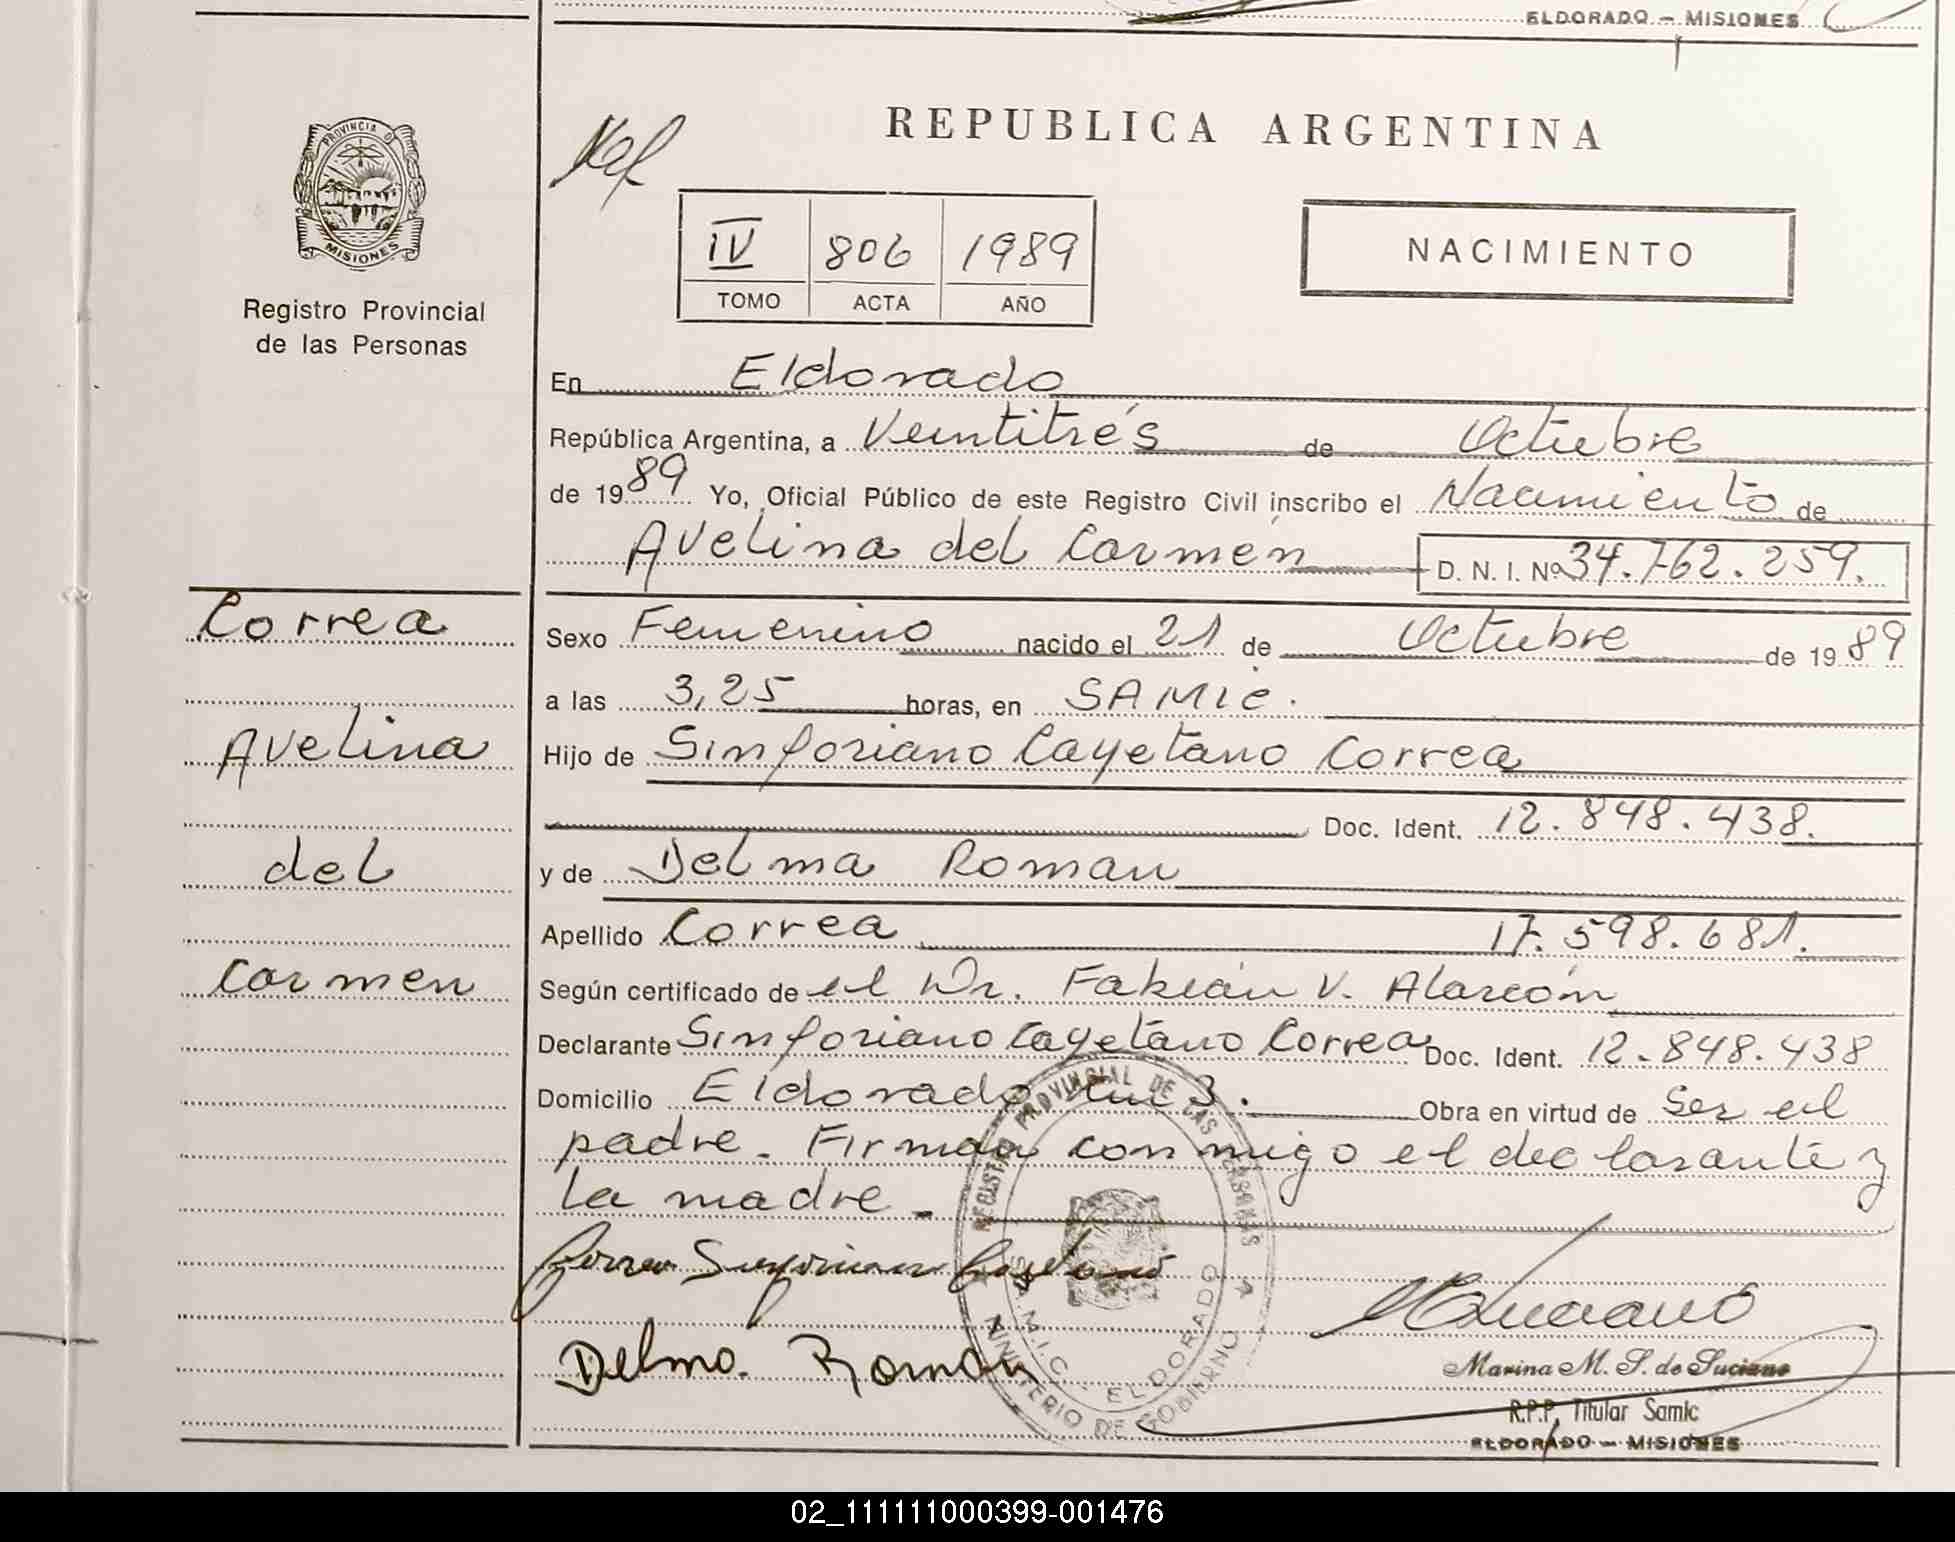 ELDORADO - MISIONES
PROVINCIA DE
MISIONES
Registro Provincial
de las Personas
REPUBLICA ARGENTINA
IV 806 1989
TOMO ACTA AÑO
NACIMIENTO
En Eldorado
República Argentina, a Veintitrés de Octubre
de 1989 Yo, Oficial Público de este Registro Civil inscribo el Nacimiento de
Avelina del Carmen D. N. I. Nº 34.762.259.
Correa
Avelina
del
Carmen
Sexo Femenino nacido el 21 de Octubre de 1989
a las 3,25 horas, en SAMIC.
Hijo de Sinforiano Cayetano Correa
Doc. Ident. 12.848.438.
y de Delma Roman
Apellido Correa 17.598.681.
Según certificado de el Dr. Fabián V. Alarcón
Declarante Sinforiano Cayetano Correa Doc. Ident. 12.848.438
Domicilio Eldorado Km 3. Obra en virtud de Ser el
padre. Firman conmigo el declarante y
la madre.
Correa Sinforiano Cayetano
Delma. Roman
REGISTRO PROVINCIAL DE LAS PERSONAS
S.A.M.I.C. ELDORADO
MINISTERIO DE GOBIERNO
Marina M. S. de Suciano
R.P.P. Titular Samic
ELDORADO - MISIONES
02_111111000399-001476